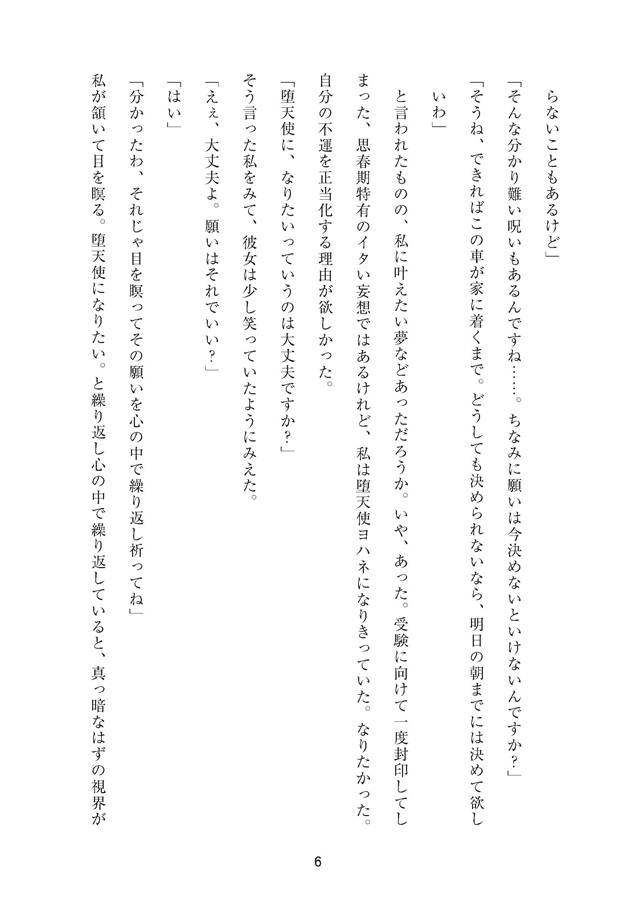 らないこともあるけど」
「そんな分かり難い呪いもあるんですね……。ちなみに願いは今決めないといけないんですか？」
「そうね、できればこの車が家に着くまで。どうしても決められないなら、明日の朝までには決めて欲し
いわ」
と言われたものの、私に叶えたい夢などあっただろうか。いや、あった。受験に向けて一度封印してし
まった、思春期特有のイタい妄想ではあるけれど、私は堕天使ヨハネになりきっていた。なりたかった。
自分の不運を正当化する理由が欲しかった。
「堕天使に、なりたいっていうのは大丈夫ですか？」
そう言った私をみて、彼女は少し笑っていたようにみえた。
「えぇ、大丈夫よ。願いはそれでいい？」
「はい」
「分かったわ、それじゃ目を瞑ってその願いを心の中で繰り返し祈ってね」
私が頷いて目を瞑る。堕天使になりたい。と繰り返し心の中で繰り返していると、真っ暗なはずの視界が
6